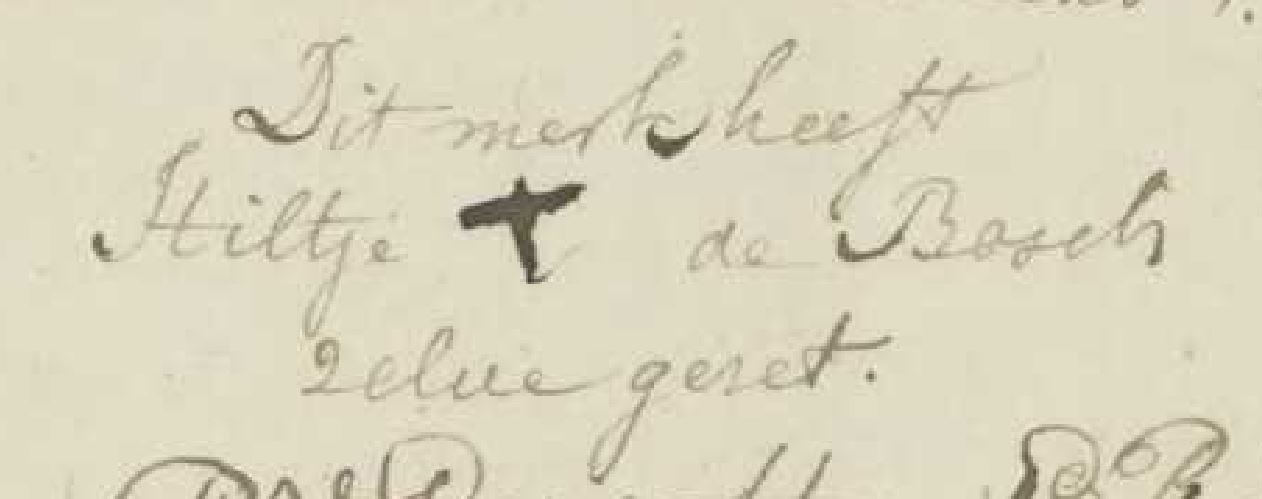 Dit merk heeft
Hiltje + de Bosch
zelve gezet.